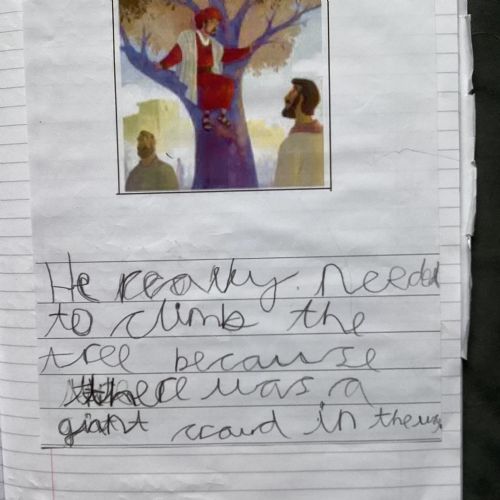 He really needed
to climb the
tree because
there was a
giant crowd in the way